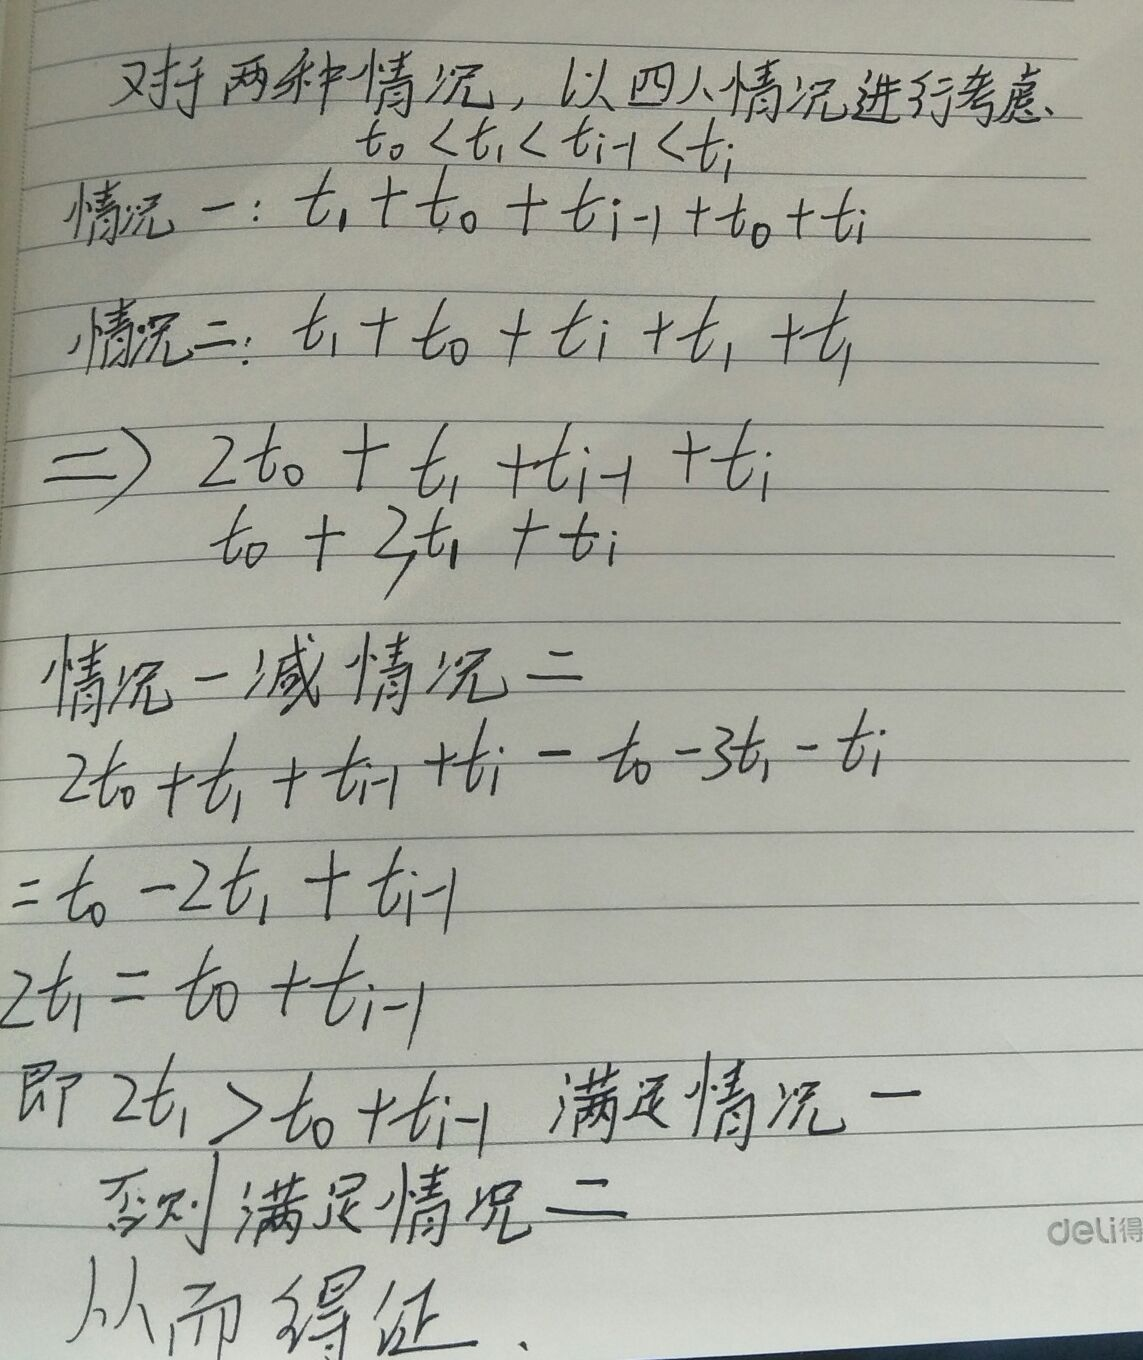 对于两种情况，以四人情况进行考虑、
t₀ < t₁ < tᵢ₋₁ < tᵢ
情况一：t₁ + t₀ + tᵢ₋₁ + t₀ + tᵢ
情况二：t₁ + t₀ + tᵢ + t₁ + t₁
=> 2t₀ + t₁ + tᵢ₋₁ + tᵢ
t₀ + 2t₁ + tᵢ
情况一减情况二
2t₀ + t₁ + tᵢ₋₁ + tᵢ - t₀ - 3t₁ - tᵢ
= t₀ - 2t₁ + tᵢ₋₁
2t₁ = t₀ + tᵢ₋₁
即 2t₁ > t₀ + tᵢ₋₁ 满足情况一
否则满足情况二
deli得
从而得证、